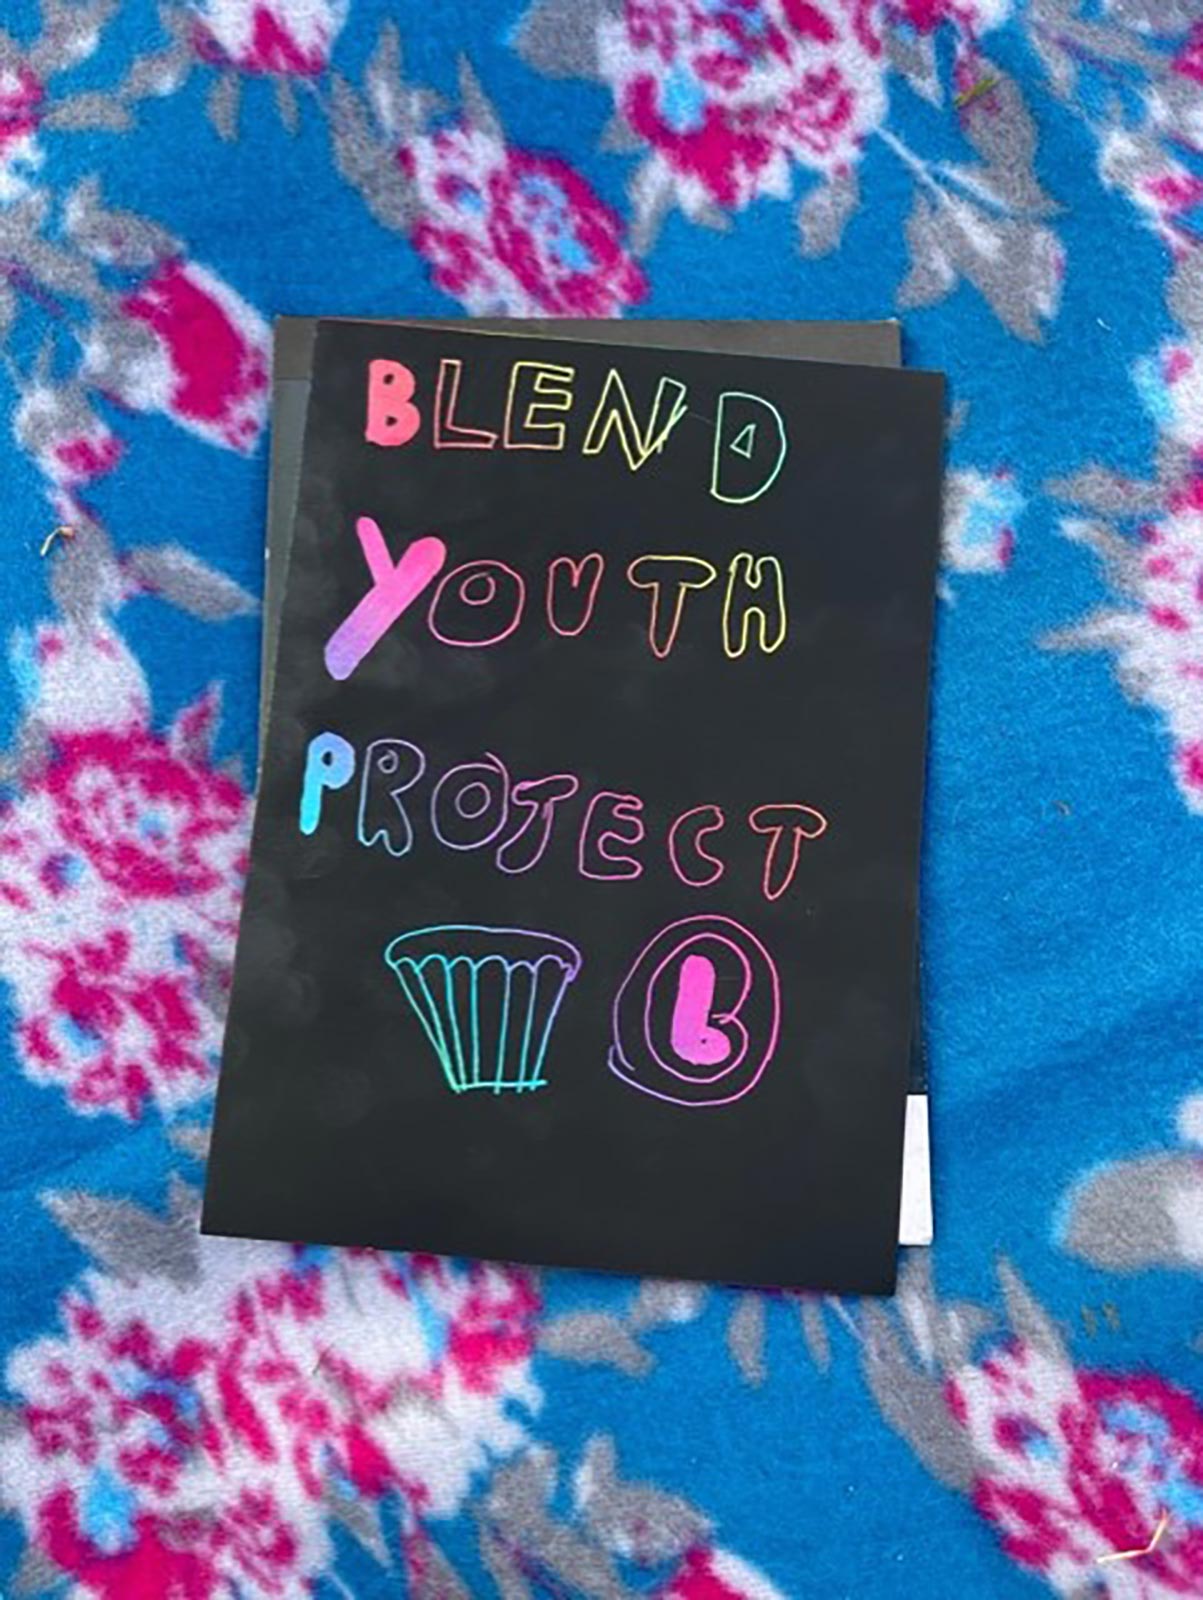 BLEND
YOUTH
PROJECT
B